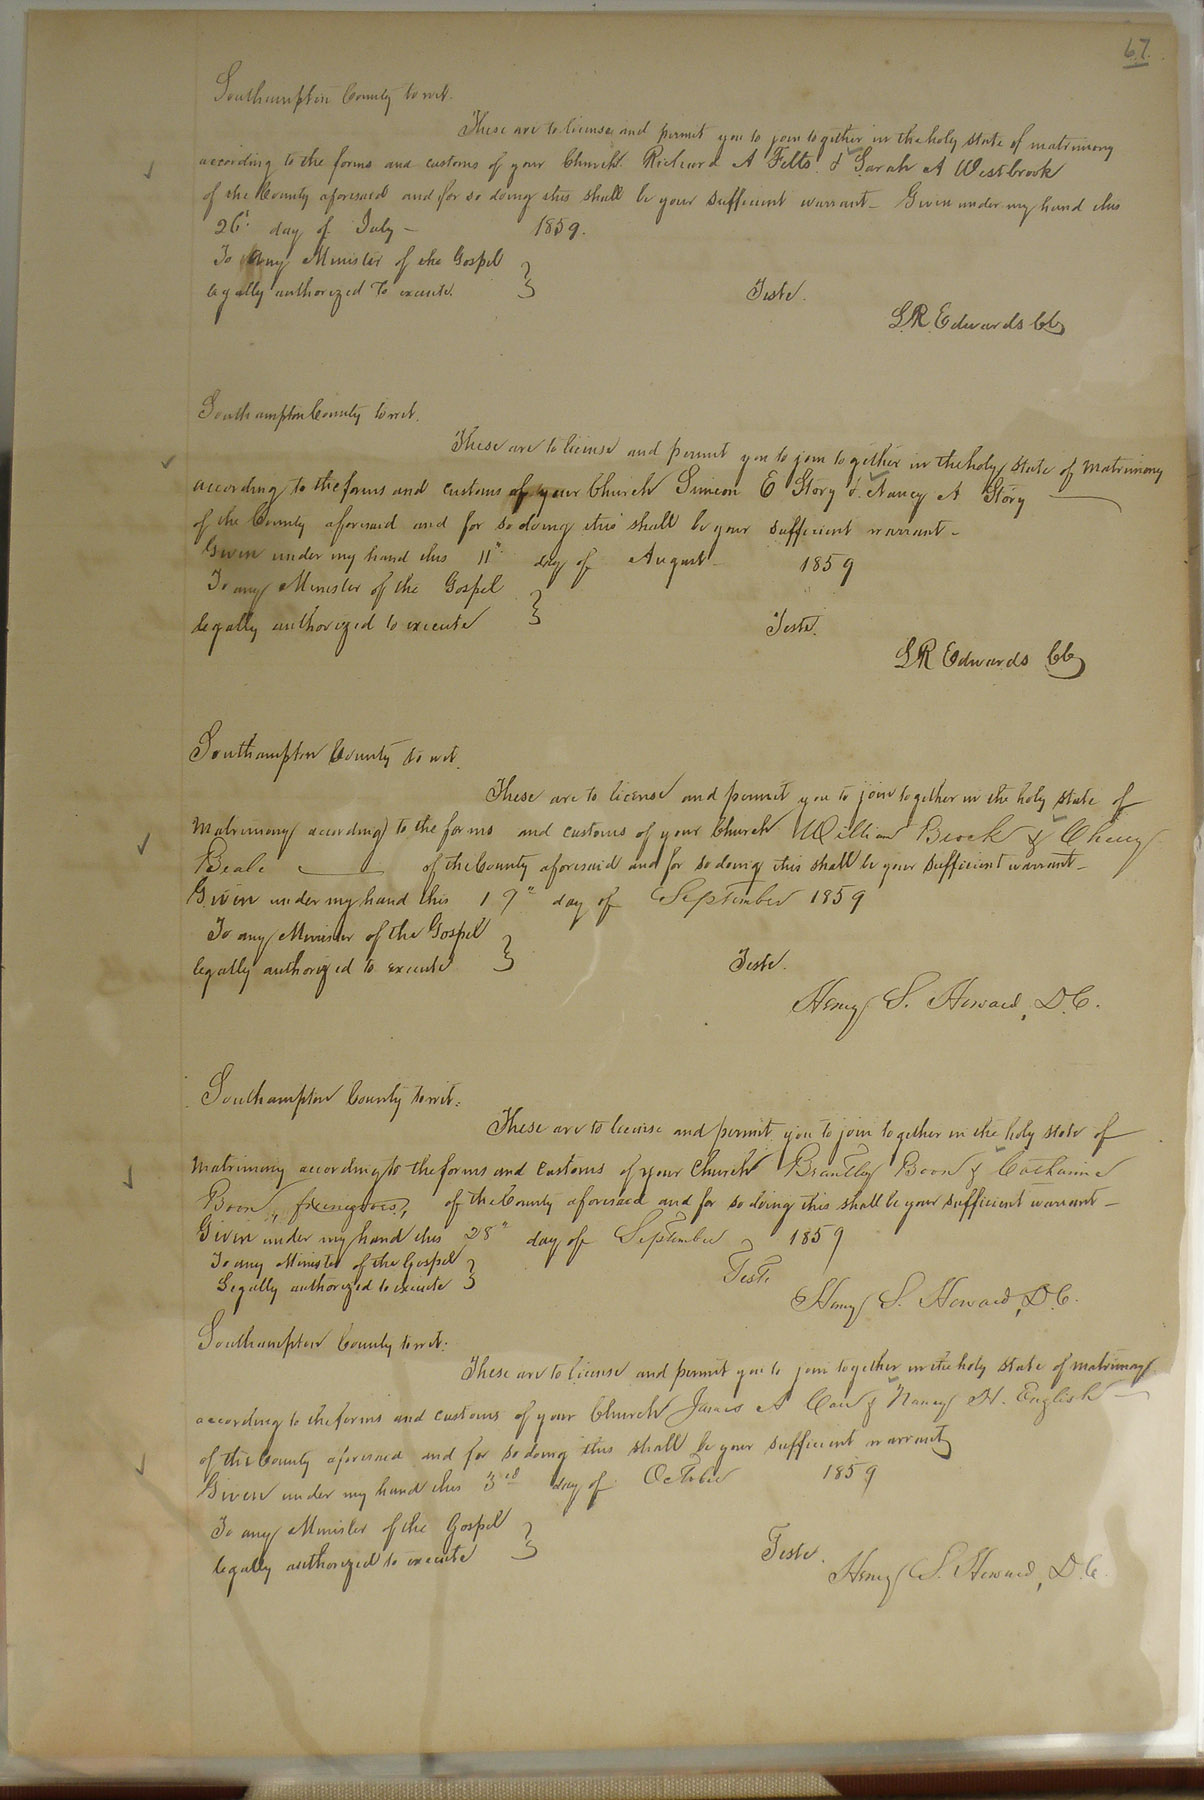 67.
Southampton County to wit.
These are to license and permit you to join together in the holy state of matrimony
according to the forms and customs of your Church Richard A Felts & Sarah A Westbrook
of the County aforesaid and for so doing this shall be your sufficient warrant_ Given under my hand this
26" day of July – 1859.
To any Minister of the Gospel
legally authorized to execute. }
Teste.
L R Edwards CC
Southampton County to wit.
These are to license and permit you to join together in the holy state of matrimony
according to the forms and customs of your Church Simeon E Story & Nancy A Story
of the County aforesaid and for so doing this shall be your sufficient warrant –
Given under my hand this 11" day of August 1859
To any Minister of the Gospel
legally authorized to execute }
Teste.
L R Edwards CC
Southampton County to wit.
These are to license and permit you to join together in the holy state of
Matrimony according to the forms and customs of your Church William Brock &
Beale of the County aforesaid and for so doing this shall be your sufficient warrant –
Given under my hand this 19" day of September 1859
To any Minister of the Gospel
legally authorized to execute }
Teste.
Henry S. Howard, D.C.
Southampton County to wit:
These are to license and permit you to join together in the holy state of
Matrimony according to the forms and customs of your Church Brantley Boon & Catharine
Boon, free negroes, of the County aforesaid and for so doing this shall be your sufficient warrant –
Given under my hand this 28" day of September 1859
To any Minister of the Gospel
Legally authorized to execute }
Teste
Henry S. Howard, D.C.
Southampton County to wit:
These are to license and permit you to join together in the holy state of matrimony
according to the forms and customs of your Church James A & Nancy H. English
of the County aforesaid and for so doing this shall be your sufficient warrant
Given under my hand this 3rd day of October 1859
To any Minister of the Gospel
legally authorized to execute }
Teste.
Henry S. Howard, D.C.